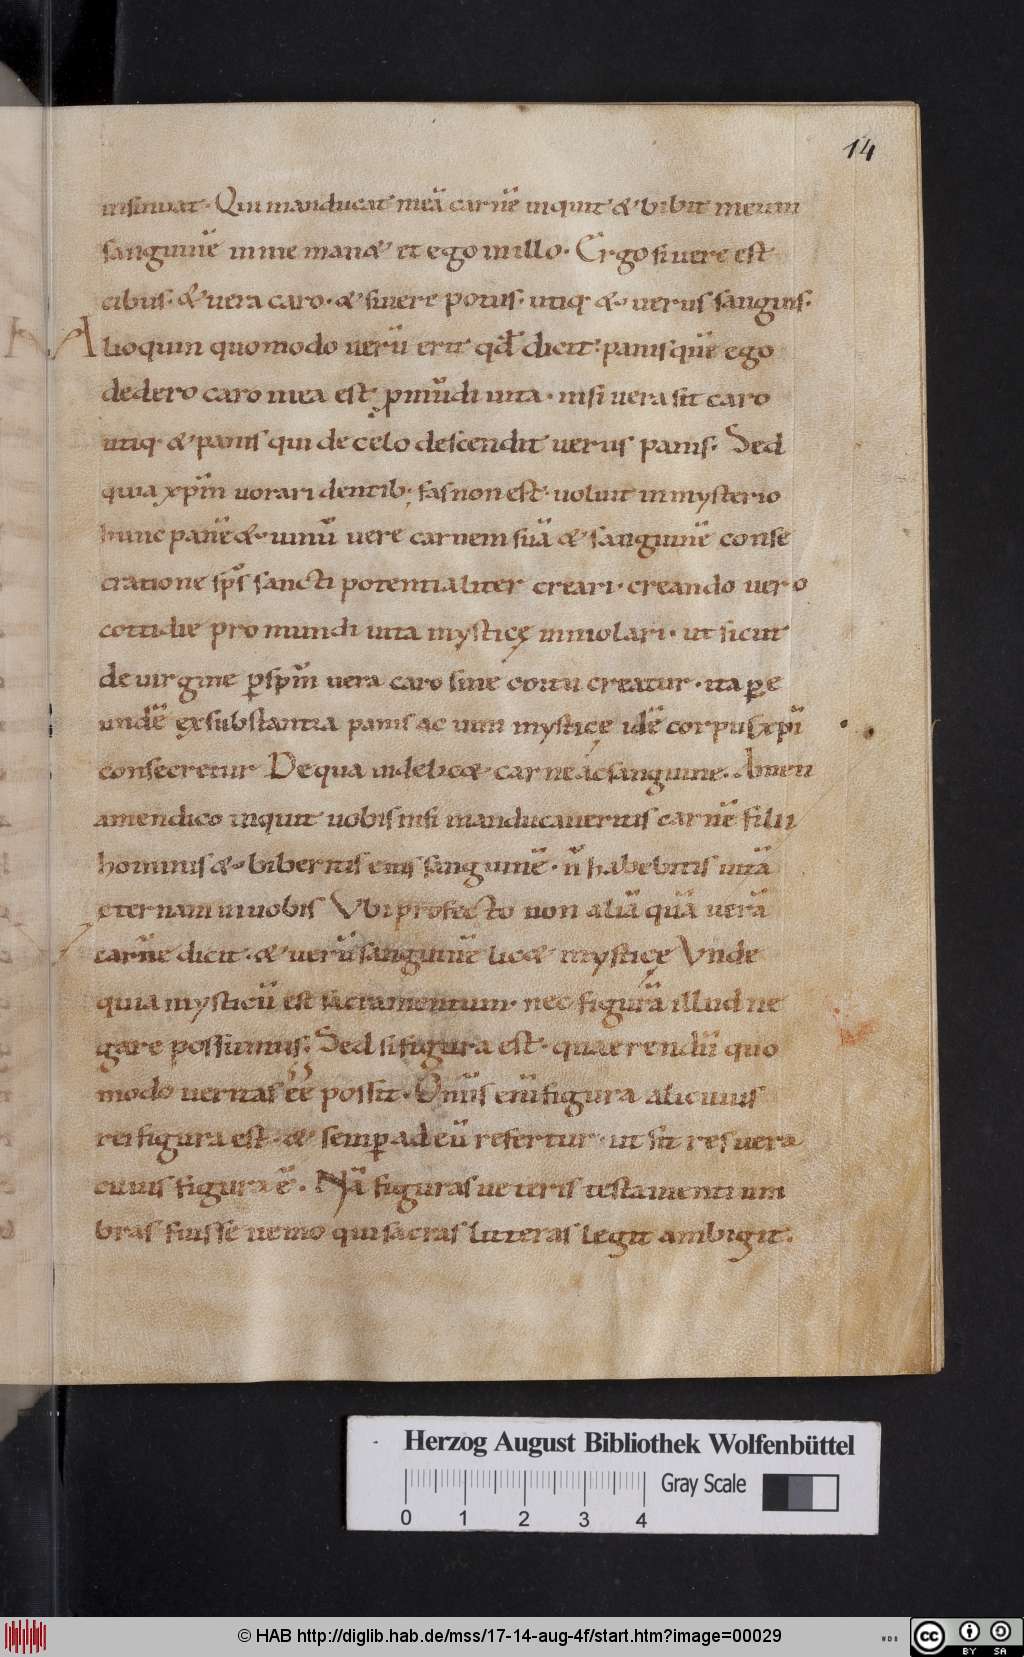 14
insinuat. Qui manducat meā carnē inquit & bibit meum
sanguinē in me man& et ego in illo. Ergo si uere est
cibus. & uera caro. & si uere potus. utiq; & uerus sanguis.
Alioquin quomodo uerū erit qđ dicit. panis quē ego
dedero caro mea est ꝓ mūdi uita. nisi uera sit caro
utiq; & panis qui de celo descendit uerus panis. Sed
quia xp̄m uorari dentib; fas non est. uoluit in mysterio
hunc panē & uinū uere carnem suā & sanguinē conse
cratione sp̄s sancti potentialiter creari. creando uero
cottidie pro mundi uita mysticę inmolari. ut sicut
de uirgine ꝑ sp̄m uera caro sine coitu creatur. ita ꝑ e
undē ex substantia panis ac uini mysticę idē corpus xp̄i
consecretur De qua uidelic& carne ac sanguine. Amen
amen dico inquit uobis nisi manducaueritis carnē filii
hominis & biberitis eius sanguinē. ñ habebitis uitā
ęternam in uobis Vbi profecto non aliā quā uerā
carnē dicit. & uerū sanguinē lic& mysticę Vnde
quia mysticū est sacramentum. nec figurā illud ne
gare possumus. Sed si figura est. quaerendū quo
modo ueritas ēē possit. Om̄is enī figura alicuius
rei figura est. & semꝑ ad eū refertur. ut sit res uera
cuius figura ē. Nā figuras ueteris testamenti um
bras fuisse nemo qui sacras litteras legit ambigit.
Herzog August Bibliothek Wolfenbüttel
0 1 2 3 4 Gray Scale
© HAB http://diglib.hab.de/mss/17-14-aug-4f/start.htm?image=00029
WDB
cc BY SA